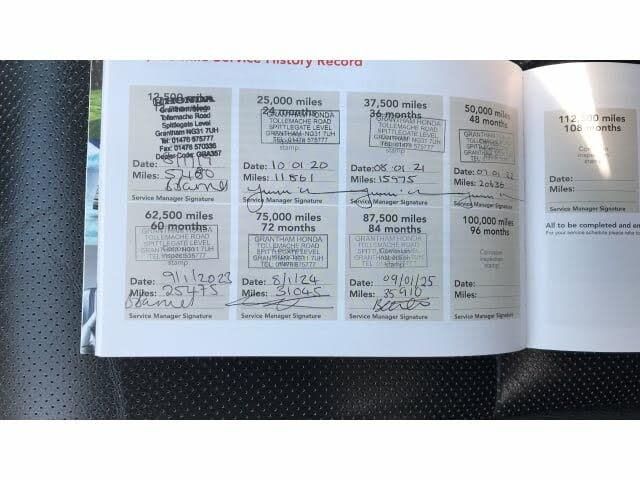 Service History Record
12,500 miles
HONDA
Grantham Honda
Tollemache Road
Spittlegate Level
Grantham NG31 7UH
Tel: 01476 575777
Fax: 01476 570336
Dealer Code:
Date:
Miles:
Service Manager Signature
25,000 miles
24 months
GRANTHAM HONDA
TOLLEMACHE ROAD
SPITTLEGATE LEVEL
GRANTHAM NG31 7UH
TEL: 01476 575777
stamp
Date: 10 01 20
Miles: 11861
Service Manager Signature
37,500 miles
36 months
GRANTHAM HONDA
TOLLEMACHE ROAD
SPITTLEGATE LEVEL
GRANTHAM NG31 7UH
TEL: 01476 575777
stamp
Date: 08 01 21
Miles: 15975
Service Manager Signature
50,000 miles
48 months
GRANTHAM HONDA
TOLLEMACHE ROAD
stamp
Date: 07 01 22
Miles: 20636
Service Manager Signature
112,500 miles
108 months
Corrosion
inspection
stamp
Date:
Miles:
Service Manager Signature
62,500 miles
60 months
GRANTHAM HONDA
TOLLEMACHE ROAD
SPITTLEGATE LEVEL
stamp
Date: 9/1/2023
Miles: 25475
Service Manager Signature
75,000 miles
72 months
GRANTHAM HONDA
TOLLEMACHE ROAD
SPITTLEGATE LEVEL
GRANTHAM NG31 7UH
TEL: 01476 575777
Date: 8/1/24
Miles: 31045
Service Manager Signature
87,500 miles
84 months
GRANTHAM HONDA
TOLLEMACHE ROAD
stamp
Date: 09/01/25
Miles: 35910
Service Manager Signature
100,000 miles
96 months
Corrosion
inspection
stamp
Date:
Miles:
Service Manager Signature
All to be completed and
For your service schedule please refer to